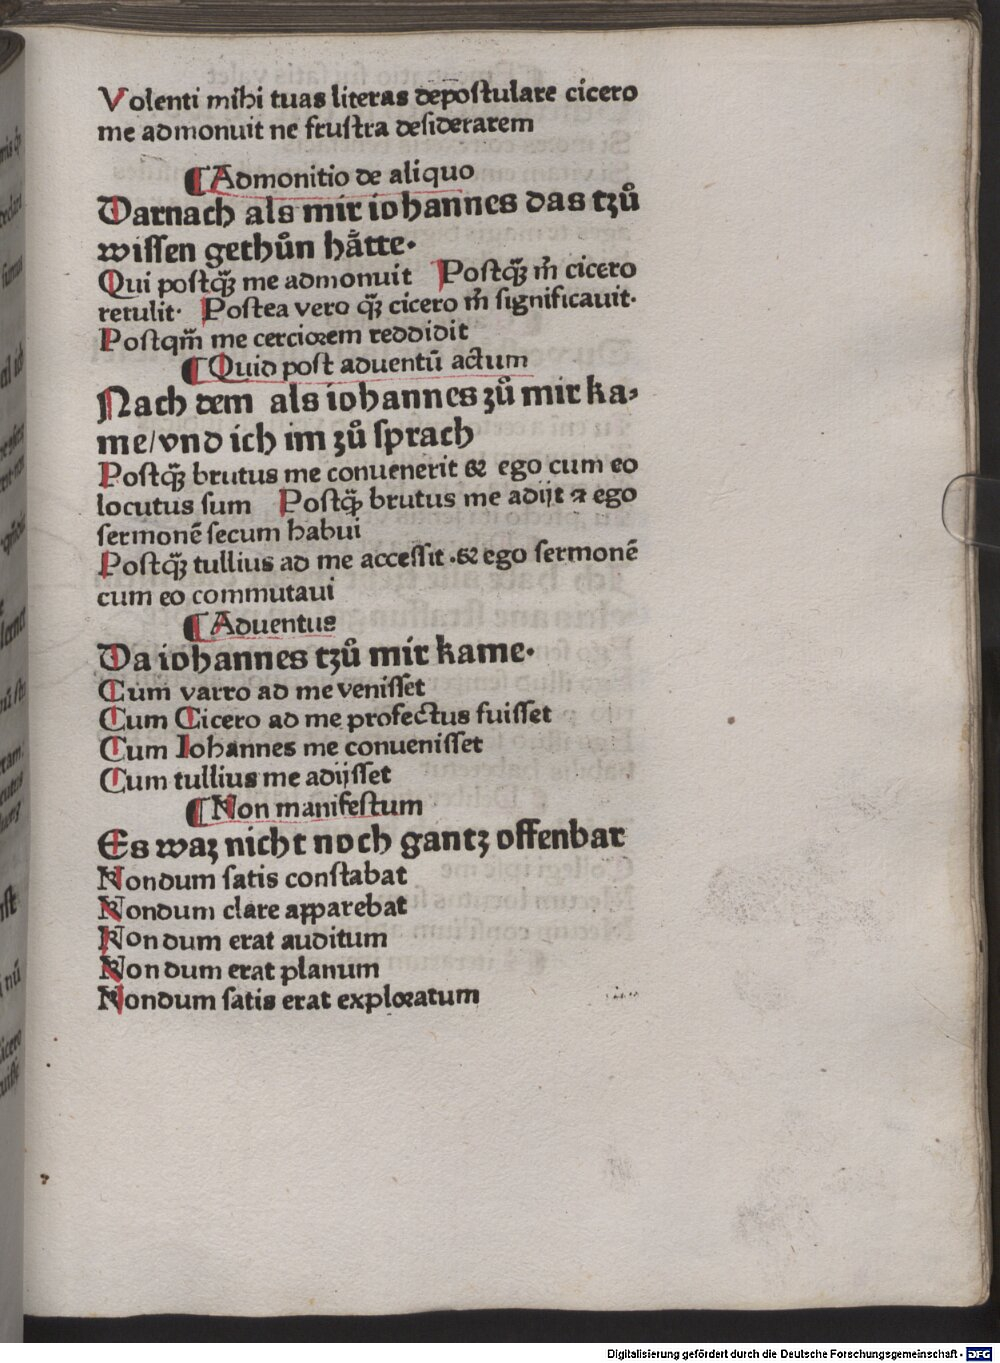 Volenti mihi tuas literas depostulare cicero
me admonuit ne frustra desiderarem
⸿Admonitio de aliquo
Darnach als mir iohannes das tzů
wissen gethůn håtte·
Qui postq̃ꝫ me admonuit Postq̃ꝫ m̃ cicero
retulit· Postea vero q̃ꝫ cicero m̃ significauit·
Postqm̃ me cerciorem reddidit
⸿Quid post aduentū actum
Nach dem als iohannes zů mir ka⸗
me/vnd ich im zů sprach
Postq̃ꝫ brutus me conuenerit & ego cum eo
locutus sum Postq̃ꝫ brutus me adijt ⁊ ego
sermonē secum habui
Postq̃ꝫ tullius ad me accessit ·& ego sermonē
cum eo commutaui
⸿Aduentus
Da iohannes tzů mir kame·
Cum varro ad me venisset
Cum Cicero ad me profectus fuisset
Cum Iohannes me conuenisset
Cum tullius me adijsset
⸿Non manifestum
Es waꝫ nicht noch gantz offenbar
Nondum satis constabat
Nondum clare apparebat
Nondum erat auditum
Nondum erat planum
Nondum satis erat exploratum
Digitalisierung gefördert durch die Deutsche Forschungsgemeinschaft - DFG